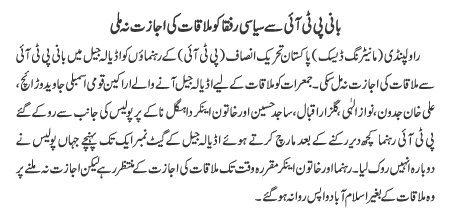 بانی پی ٹی آئی سے سیاسی رفقا کو ملاقات کی اجازت نہ ملی
راولپنڈی (مانیٹرنگ ڈیسک) پاکستان تحریک انصاف (پی ٹی آئی) کے رہنماؤں کو اڈیالہ جیل میں بانی پی ٹی آئی
سے ملاقات کی اجازت نہ مل سکی۔ جمعرات کو ملاقات کے لیے اڈیالہ جیل آنے والے اراکین قومی اسمبلی جاوید وڑائچ،
علی خان جدون، نواز الٰہی، گلزار اقبال، ساجد حسین اور خاتون اینکر داہگل ناکے پر پولیس کی جانب سے روکے گئے
پی ٹی آئی رہنما کچھ دیر رکنے کے بعد مارچ کرتے ہوئے اڈیالہ جیل کے گیٹ نمبر ایک تک پہنچے جہاں پولیس نے
دوبارہ انہیں روک لیا۔ رہنما اور خاتون اینکر مقررہ وقت تک ملاقات کی اجازت کے منتظر رہے لیکن اجازت نہ ملنے پر
وہ ملاقات کے بغیر اسلام آباد واپس روانہ ہو گئے۔